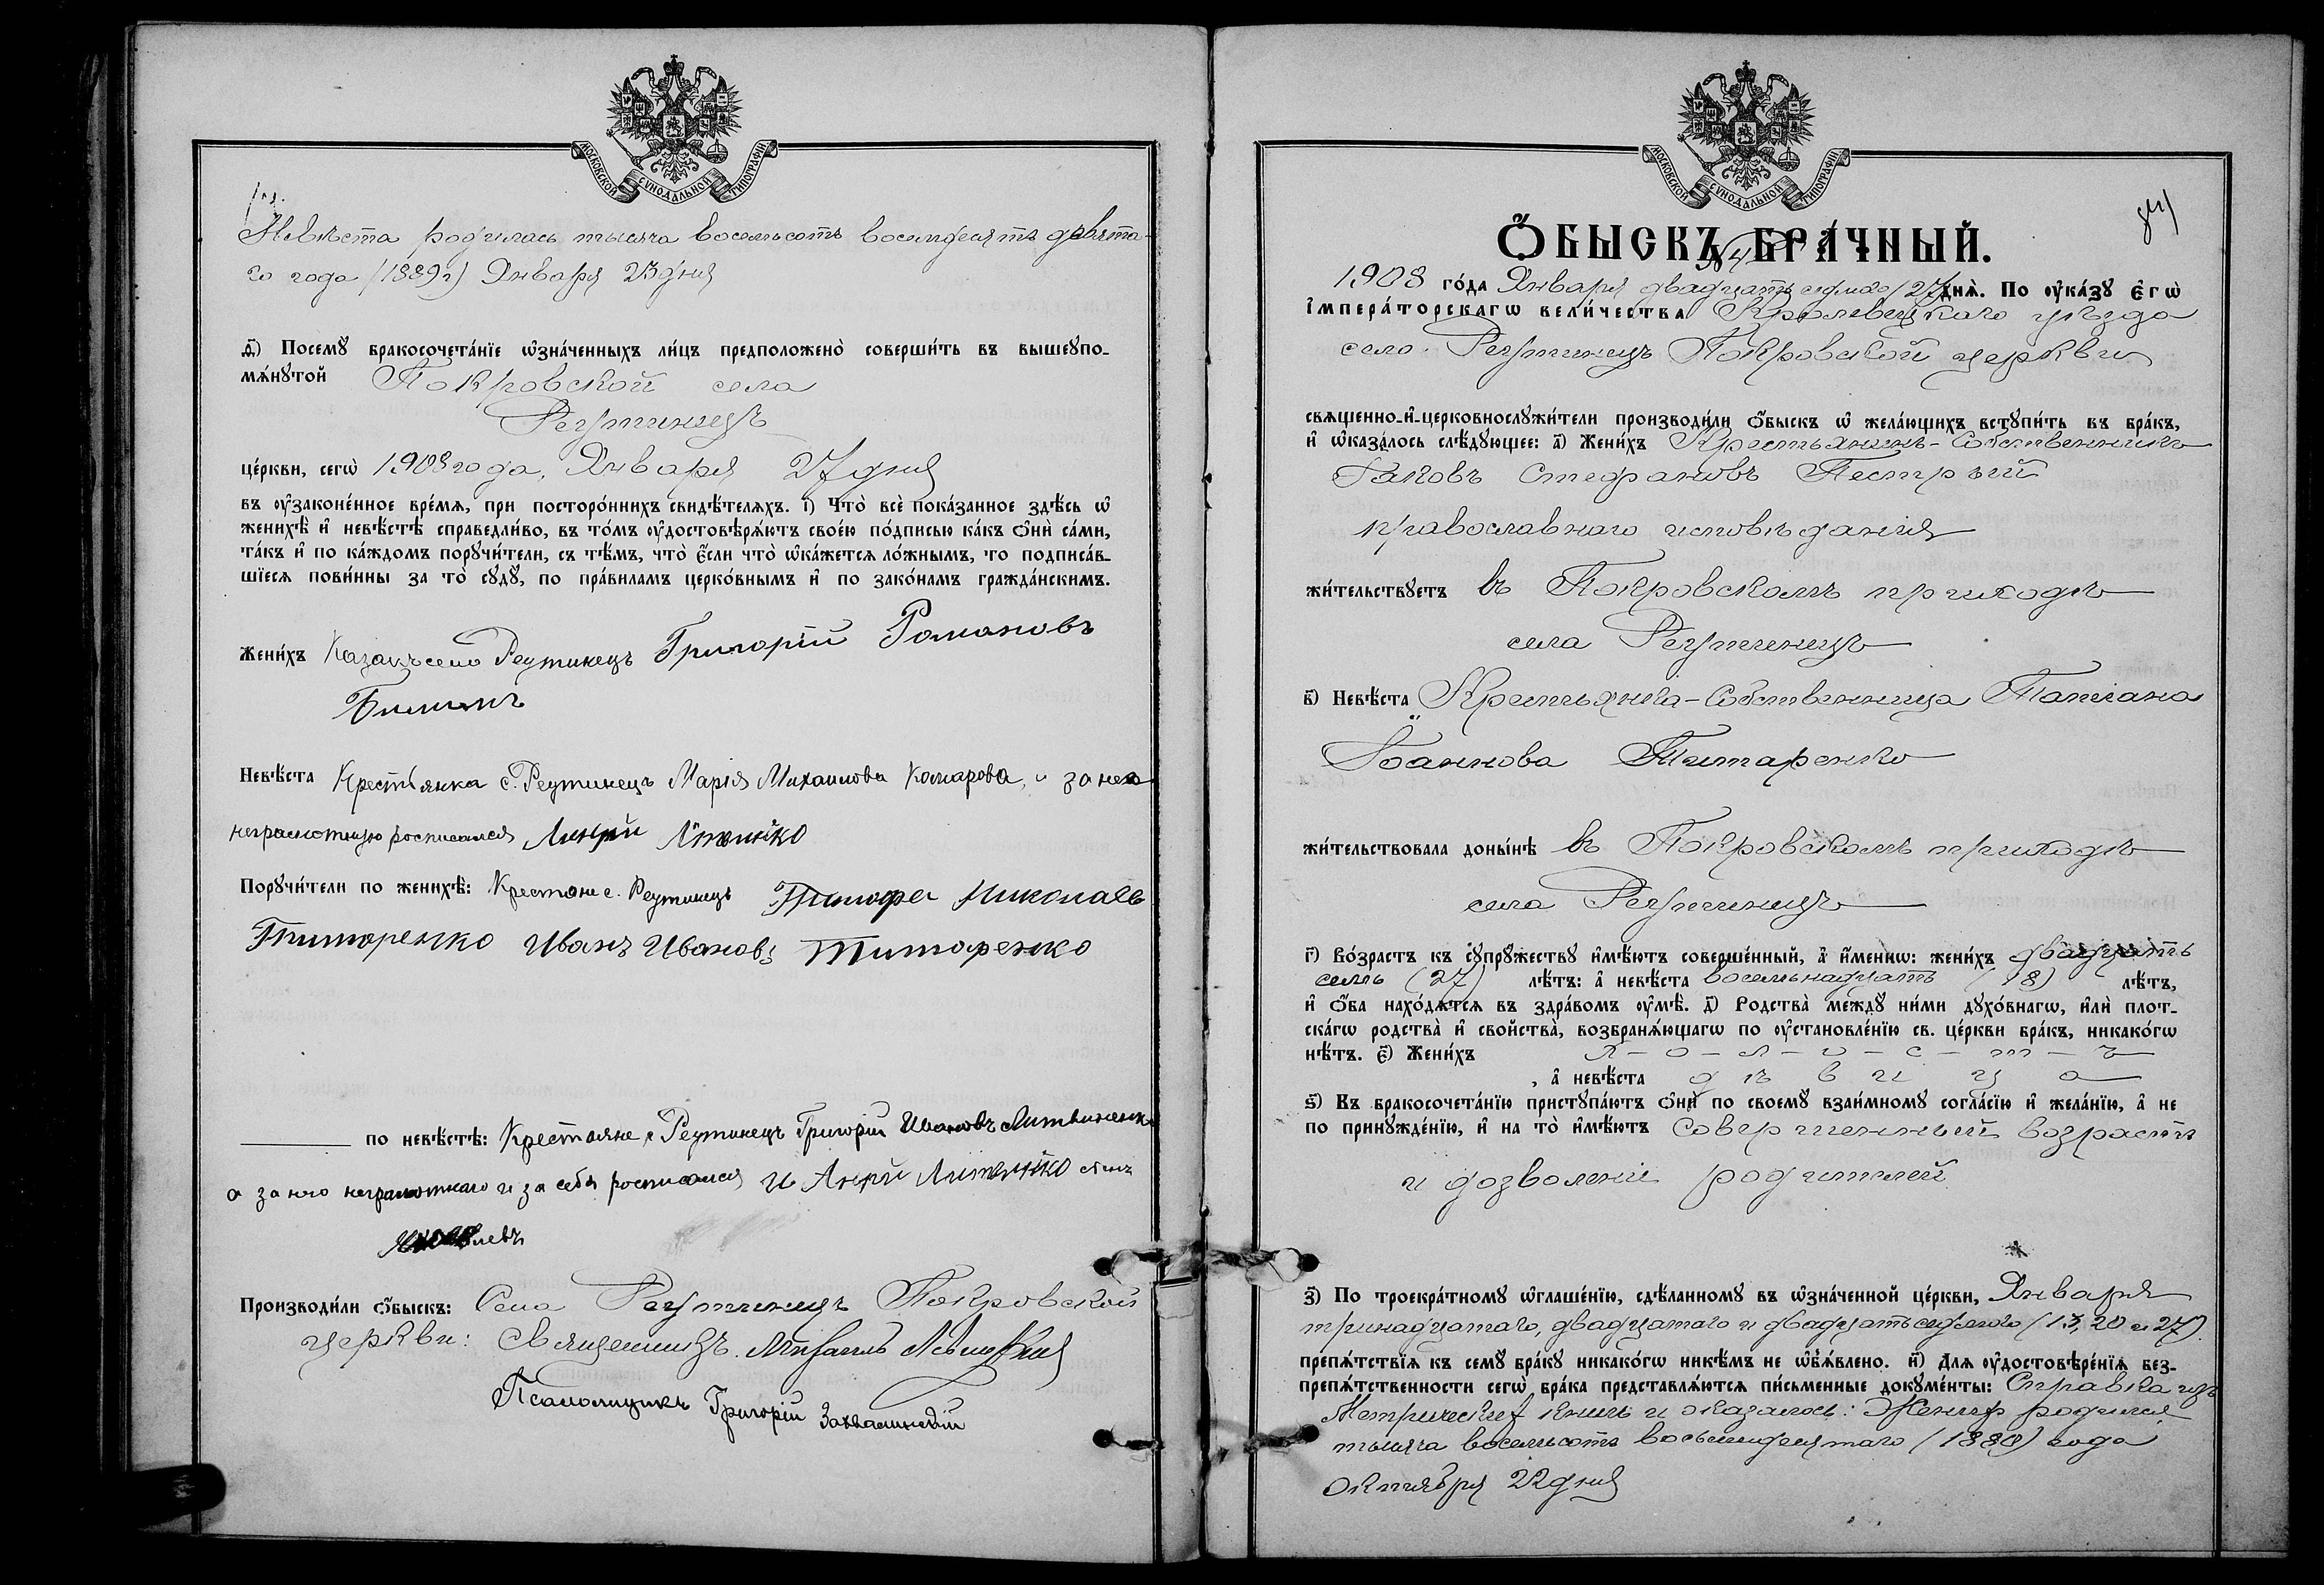 МОСКОВСКОЙ СѴНОДАЛЬНОЙ ТИПОГРАФІИ
Невѣста родилась тысяча восемьсотъ восемдесятъ девята-
го года (1889 г) Января 23 дня
д҃) Посемꙋ бракосочета́нїе ѡ҆зна́ченныхъ ли́цъ предположено̀ соверши́ть въ вышеꙋпо-
мѧ́нꙋтой Покровской села
Реутинецъ
це́ркви, сегѡ̀ 1908 года, Января 27 дня
въ ᲂу҆законе́нное вре́мѧ, при посторо́ннихъ свидѣ́телѧхъ. і҃) Что̀ всѐ пока́занное здѣ́сь ѡ҆
женихѣ̀ и҆ невѣ́стѣ справедли́во, въ то́мъ ᲂу҆достовѣрѧ́ютъ свое́ю по́дписью ка́къ ѻ҆нѝ са́ми,
та́къ и҆ по ка́ждомъ порꙋчи́тели, съ тѣ́мъ, что̀ є҆́сли что̀ ѡ҆ка́жетсѧ ло́жнымъ, то подписа́в-
шїесѧ пови́нны за то̀ сꙋдꙋ̀, по пра́виламъ церко́внымъ и҆ по зако́намъ гражда́нскимъ.
Жени́хъ Казакъ село Реутинецъ Григорій Романовъ
Невѣ́ста Крестьянка с. Реутинецъ Марія Михаилова Комарова, и за нея
неграмотную росписался
Порꙋчи́тели по женихѣ̀: Крестяне с. Реутинецъ Тимофе Николаевъ
Титоренко Иванъ Ивановъ Титоренко
по невѣ́стѣ: Крестьяне с Реутинецъ Григорій Ивановъ Литвиненк
а за него неграмотнаго и за себя росписался и
Производи́ли ѻ҆́быскъ: Села Реутинецъ Покровской
церкви: Священникъ
Псаломщикъ Григорій
МОСКОВСКОЙ СѴНОДАЛЬНОЙ ТИПОГРАФІИ
Ѻ҆́БЫСКЪ БРА́ЧНЫЙ.
№ 4
1908 го́да Января двадцать седмаго (27) днѧ̀. По ᲂу҆ка́зꙋ є҆гѡ̀
і҆мпера́торскагѡ вели́чества Кролевецкаго уѣзда
село Реутинецъ Покровской церкви
свѧщенно-и҆-церковнослꙋжи́тели производи́ли ѻ҆́быскъ ѡ҆ жела́ющихъ встꙋпи́ть въ бра́къ,
и҆ ѡ҆каза́лось слѣ́дꙋющее: а҃) Жени́хъ Крестьянинъ-Собственникъ
Іаковъ Стефановъ Пестрый
православнаго исповѣданія
жи́тельствꙋетъ въ Покровскомъ приходѣ
села Реутинецъ
в҃) Невѣ́ста Крестьянка-Собственница Татіана
Іоаннова Титаренко
жи́тельствовала доны́нѣ въ Покровскомъ приходѣ
села Реутинецъ
г҃) Во́зрастъ къ сꙋпрꙋ́жествꙋ и҆мѣ́ютъ соверше́нный, а҆ и҆́меннѡ: жени́хъ двадцать
семь (27) лѣ́тъ: а҆ невѣ́ста восемьнадцать (18) лѣ́тъ,
и҆ ѻ҆́ба нахо́дѧтсѧ въ здра́вомъ ᲂу҆мѣ̀. д҃) Родства̀ междꙋ ни́ми дꙋхо́внагѡ, и҆лѝ плот-
ска́гѡ родства̀ и҆ свойства̀, возбранѧ́ющагѡ по ᲂу҆становле́нїю св. це́ркви бра́къ, никако́гѡ
нѣ́тъ. є҃) Жени́хъ х-о-л-о-с-т-ъ
, а҆ невѣ́ста д ѣ в и ц а
ѕ҃) Въ бракосочета́нїю пристꙋпа́ютъ ѻ҆нѝ по своемꙋ взаи́мномꙋ согла́сїю и҆ жела́нїю, а҆ не
по принꙋжде́нїю, и҆ на то̀ и҆мѣ́ютъ Совершенный возрастъ
и дозволеніе родителей
з҃) По троекра́тномꙋ ѡ҆глаше́нїю, сдѣ́ланномꙋ въ ѡ҆зна́ченной це́ркви, Января
тринадцатаго, двадцатаго и двадцать седмого (13, 20 и 27)
препѧ́тствїѧ къ семꙋ бра́кꙋ никако́гѡ никѣ́мъ не ѡ҆б̾ѧ́влено. и҃) Длѧ ᲂу҆достовѣре́нїѧ без-
препѧ́тственности сегѡ̀ бра́ка представлѧ́ютсѧ пи́сьменные докꙋме́нты: Справка изъ
Метрическихъ книгъ и оказалось: Женихъ родился
тысяча восемьсотъ восьмидесятаго (1880) года
октября 22 дня